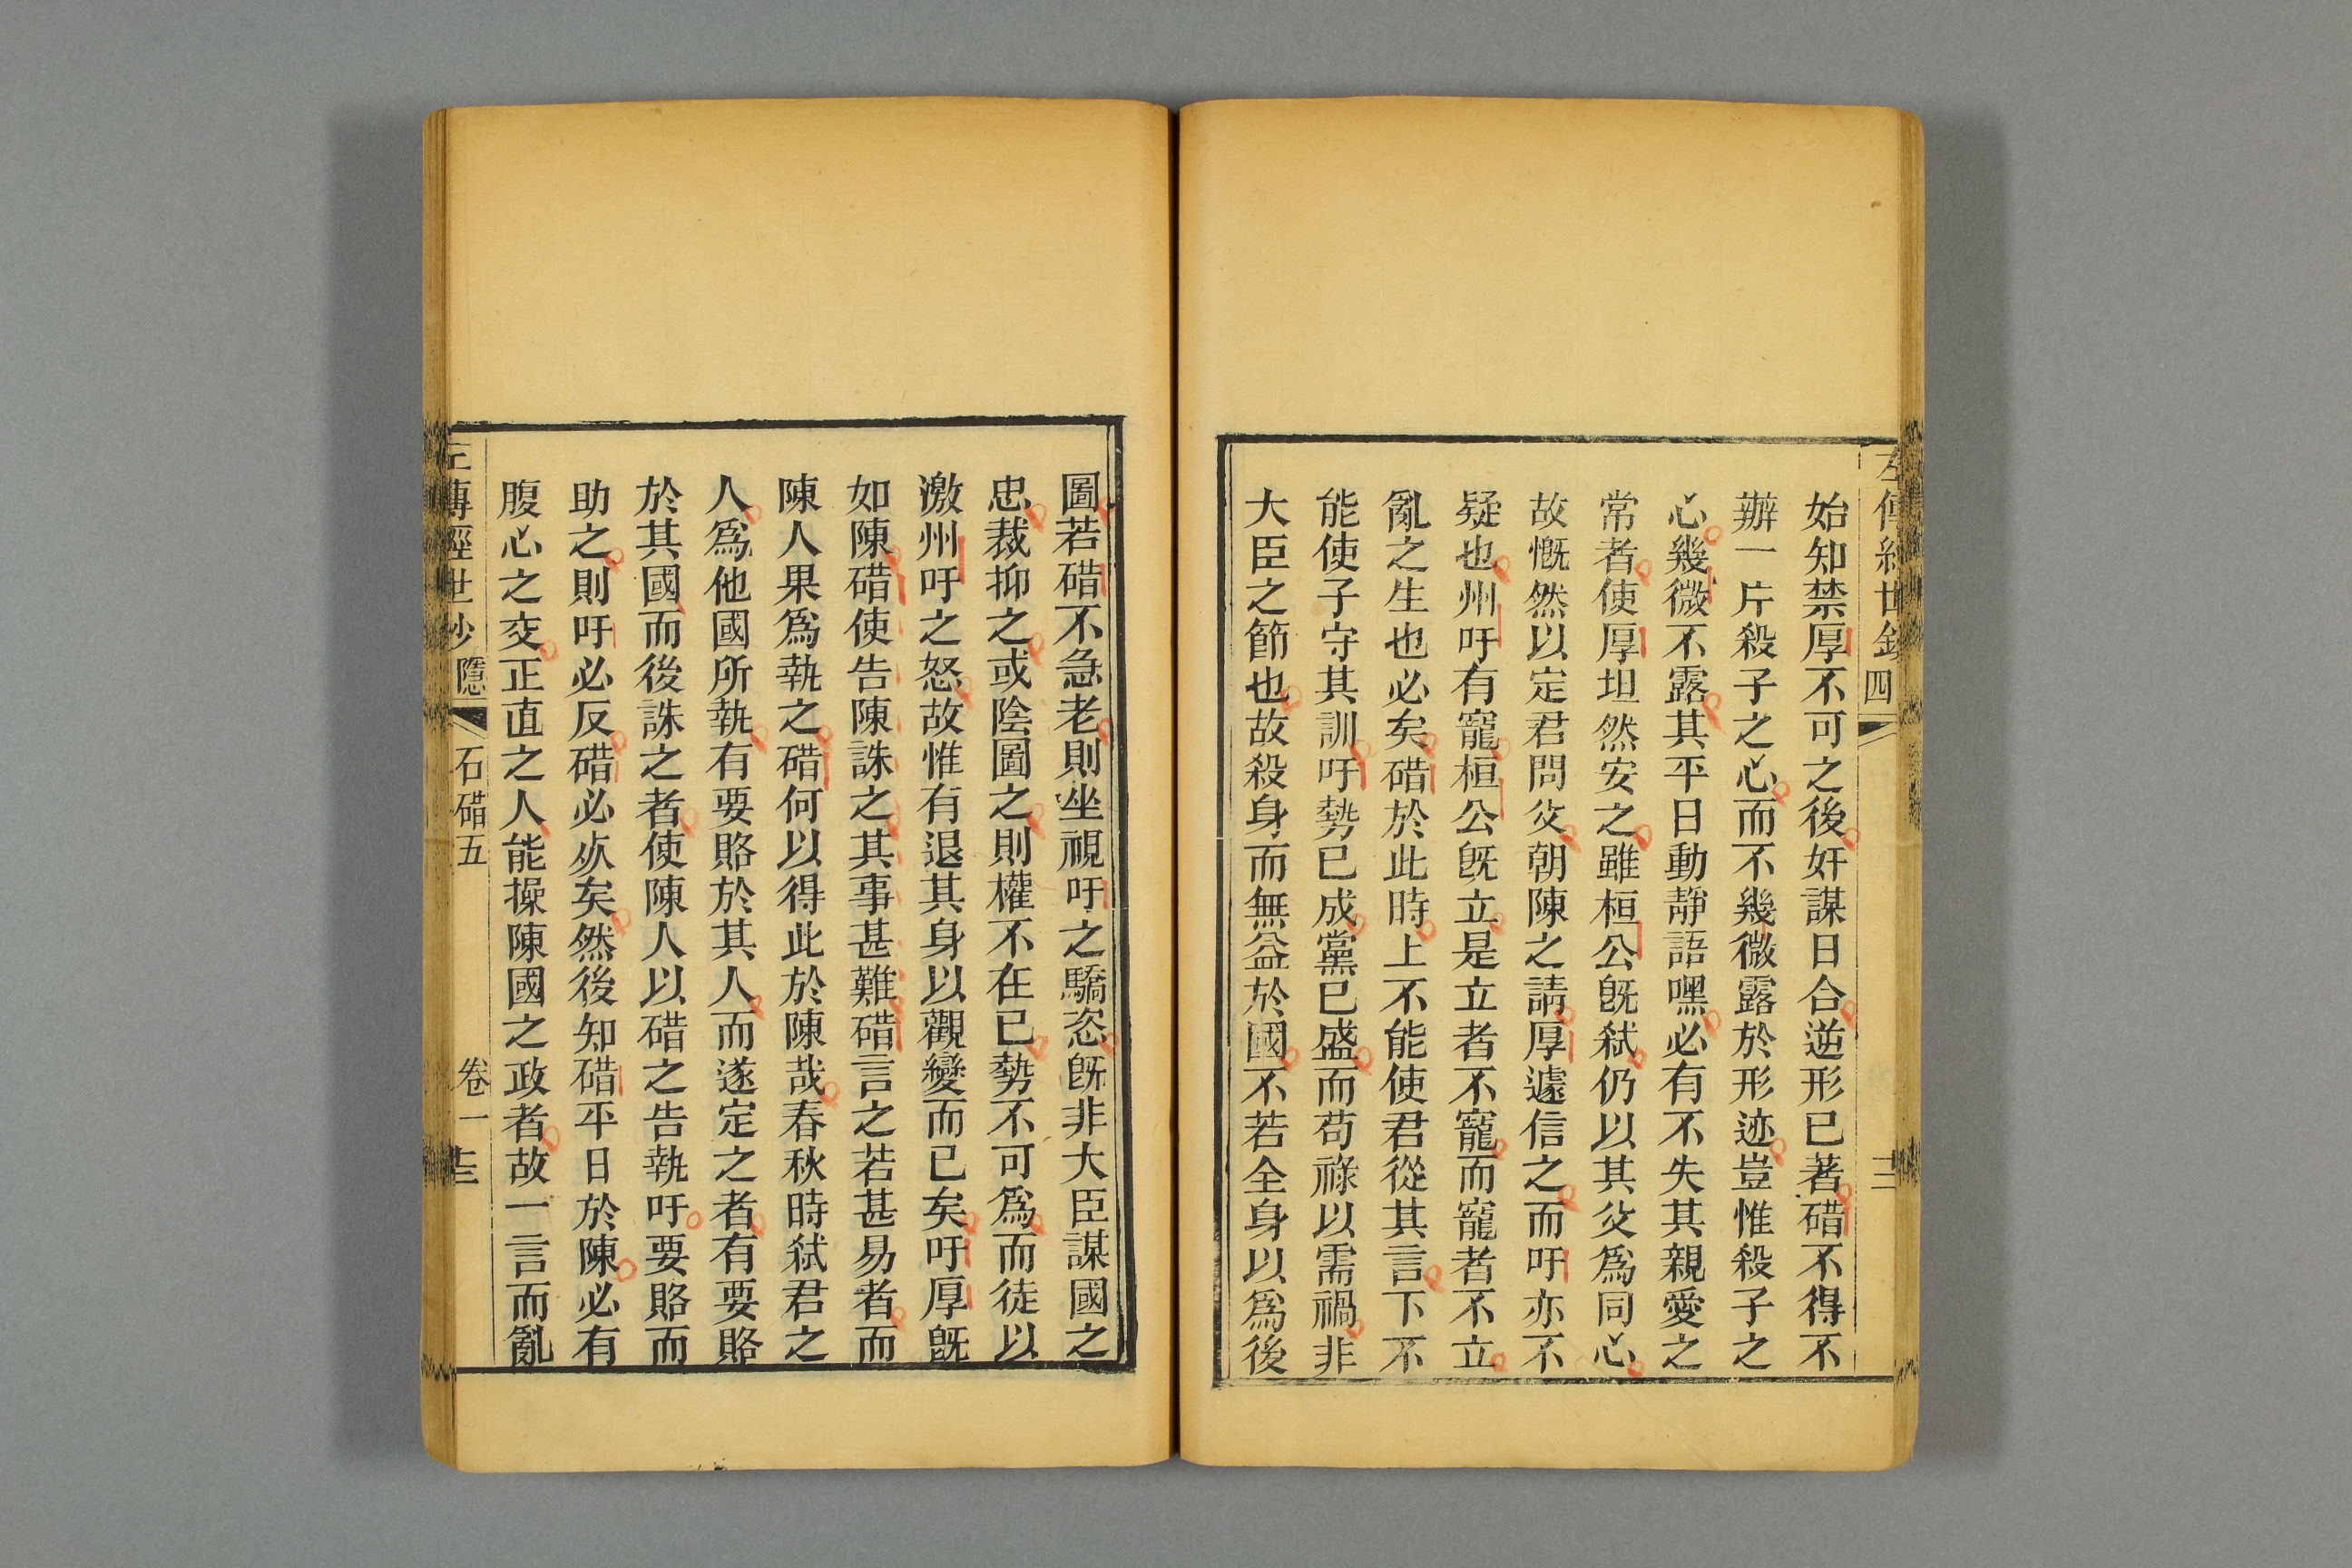 左傳經世鈔 四
始知禁厚不可之後奸謀日合逆形已著碏不得不
辦一片殺子之心而不幾微露於形迹豈惟殺子之
心幾微不露其平日動靜語嘿必有不失其親愛之
常者使厚坦然安之雖桓公旣弑仍以其父爲同心
故慨然以定君問父朝陳之請厚遽信之而吁亦不
疑也州吁有寵桓公旣立是立者不寵而寵者不立
亂之生也必矣碏於此時上不能使君從其言下不
能使子守其訓吁勢已成黨已盛而苟祿以需禍非
大臣之節也故殺身而無益於國不若全身以爲後
圖若碏不急老則坐視吁之驕恣旣非大臣謀國之
忠裁抑之或陰圖之則權不在已勢不可爲而徒以
激州吁之怒故惟有退其身以觀變而已矣吁厚旣
如陳碏使告陳誅之其事甚難碏言之若甚易者而
陳人果爲執之碏何以得此於陳哉春秋時弑君之
人爲他國所執有要賂於其人而遂定之者有要賂
於其國而後誅之者使陳人以碏之告執吁要賂而
助之則吁必反碏必㱔矣然後知碏平日於陳必有
腹心之交正直之人能操陳國之政者故一言而亂
左傳經世鈔 隱 石碏五 卷一 十三